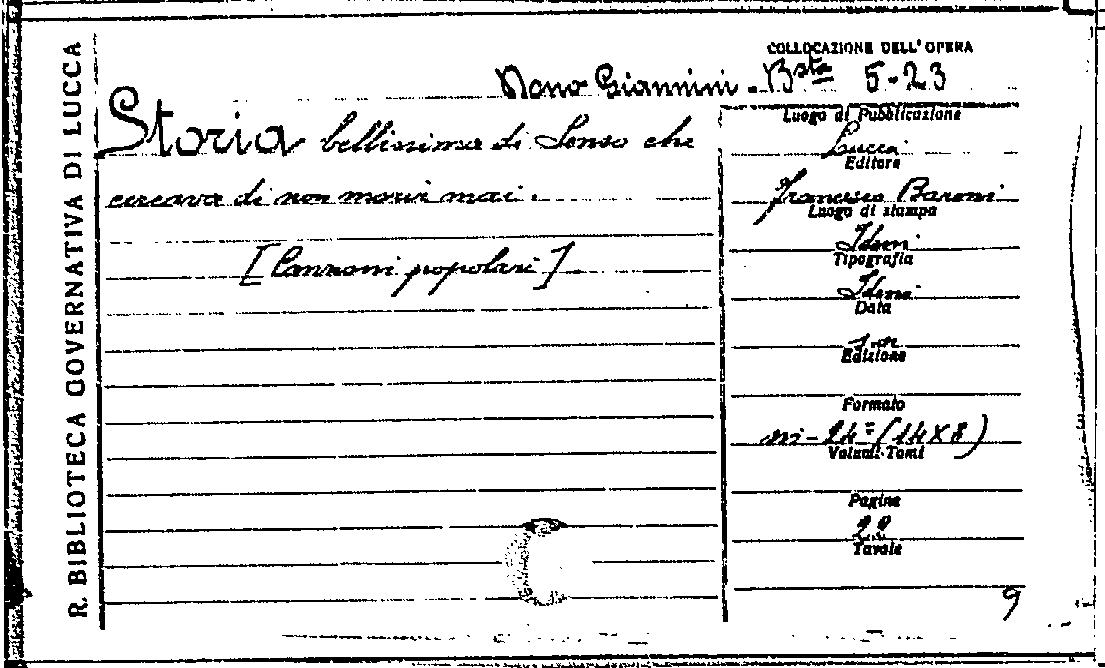 R. BIBLIOTECA GOVERNATIVA DI LUCCA
COLLOCAZIONE DELL'OPERA
Giannini - Bsta 5-23
Storia bellissima di Senso che
cercava di non morir mai.
[Canzoni popolari]
Luogo di Pubblicazione
Lucca
Editore
Francesco Baroni
Luogo di stampa
Idem
Tipografia
Idem
Data
Edizione
Formato
in-24° (14X8)
Volumi-Tomi
Pagine
22
Tavole
9